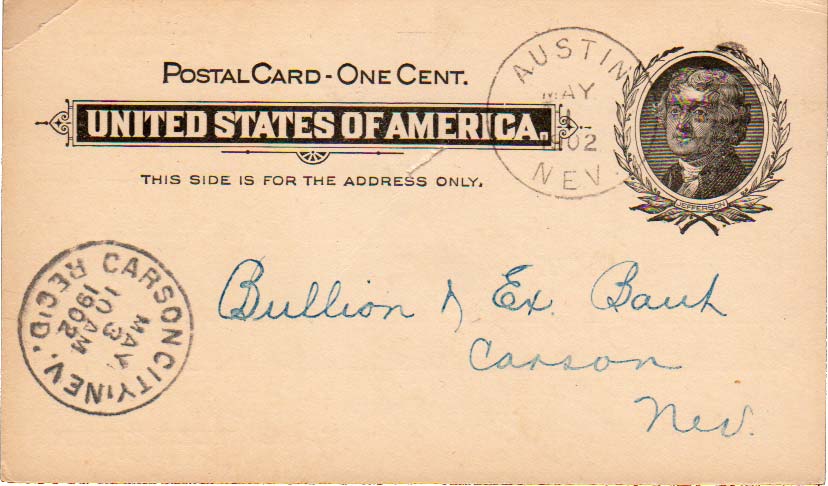 POSTAL CARD - ONE CENT.
UNITED STATES OF AMERICA.
THIS SIDE IS FOR THE ADDRESS ONLY.
AUSTIN
MAY
1902
NEV.
JEFFERSON
CARSON CITY, NEV.
MAY
3
10 AM
1902
REC'D.
Bullion & Ex. Bank
Carson
Nev.